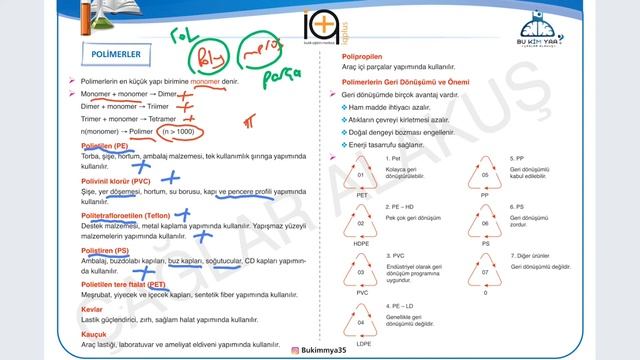 iq plus
BU KİM YAA?
POLİMERLER
çok
Poly
meros
parça
Polimerlerin en küçük yapı birimine monomer denir.
Monomer + monomer → Dimer
Dimer + monomer → Triimer
Trimer + monomer → Tetramer
n(monomer) → Polimer (n > 1000)
π
Polietilen (PE)
Torba, şişe, hortum, ambalaj malzemesi, tek kullanımlık şırınga yapımında
kullanılır.
Polivinil klorür (PVC)
Şişe, yer döşemesi, hortum, su borusu, kapı ve pencere profili yapımında
kullanılır.
Politetrafloroetilen (Teflon)
Destek malzemesi, metal kaplama yapımında kullanılır. Yapışmaz yüzeyli
malzemelerin yapımında kullanılır.
Polistiren (PS)
Ambalaj, buzdolabı kapıları, buz kapları, soğutucular, CD kapları yapımın-
da kullanılır.
Polietilen tere ftalat (PET)
Meşrubat, yiyecek ve içecek kapları, sentetik fiber yapımında kullanılır.
Kevlar
Lastik güçlendirici, zırhlı, sağlam halat yapımında kullanılır.
Kauçuk
Araç lastiği, laboratuvar ve ameliyat eldiveni yapımında kullanılır.
Polipropilen
Araç içi parçalar yapımında kullanılır.
Polimerlerin Geri Dönüşümü ve Önemi
Geri dönüşümde birçok avantaj vardır.
Ham madde ihtiyacı azalır.
Atıkların çevreyi kirletmesi azalır.
Doğal dengeyi bozması engellenir.
Enerji tasarrufu sağlanır.
01
PET
1. Pet
Kolayca geri
dönüştürülebilir.
02
HDPE
2. PE – HD
Pek çok geri dönüşüm
03
PVC
3. PVC
Endüstriyel olarak geri
dönüşüm programına
uygundur.
04
LDPE
4. PE – LD
Genellikle geri
dönüşümlü değildir.
05
PP
5. PP
Geri dönüşümlü
kabul edilebilir.
06
PS
6. PS
Geri dönüşümü
zordur.
07
0
7. Diğer ürünler
Geri dönüşümlü değildir.
ÇAĞLAR ALAKUŞ
Bukimmya35